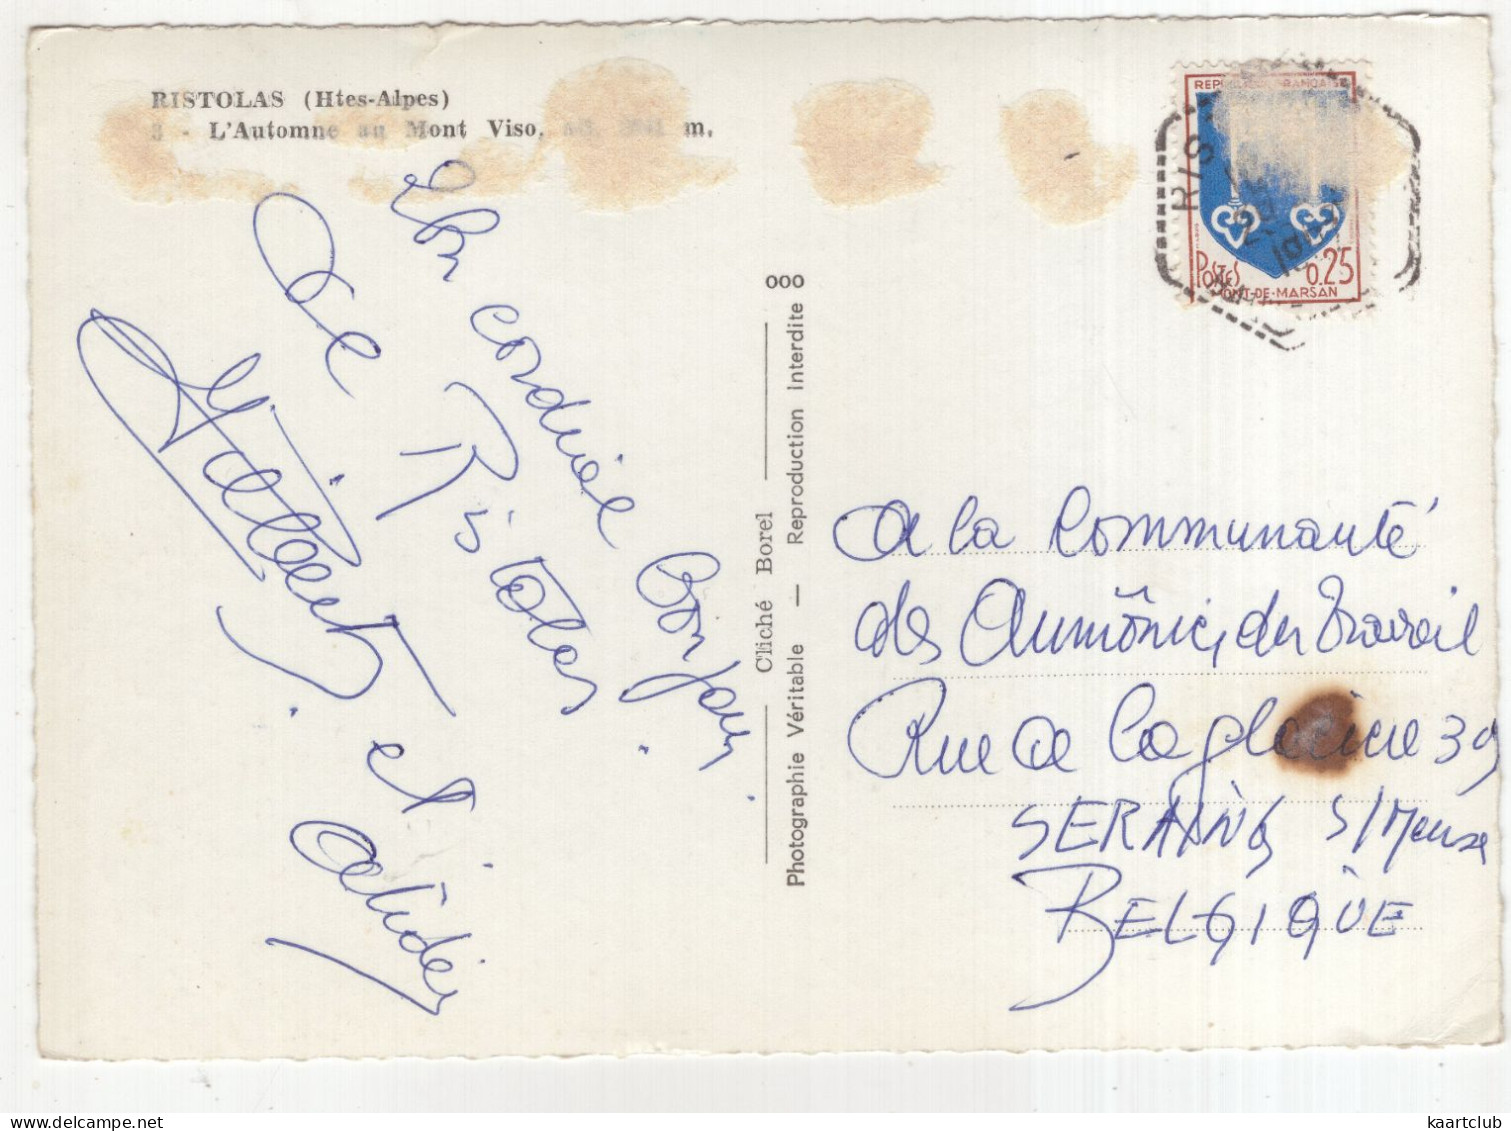 RISTOLAS (Htes-Alpes)
3 - L'Automne au Mont Viso, m.
Un cordial bonjour
de Ristolas.
Gilbert et
Cliché Borel
Photographie Véritable — Reproduction Interdite
ooo
REPUBLIQUE FRANÇAISE
POSTES 0.25
MONT-DE-MARSAN
RIS
A la Communauté
des Aumôniers du Travail
Rue de la glacière 39
SERAING s/Meuse
BELGIQUE
kaartclub